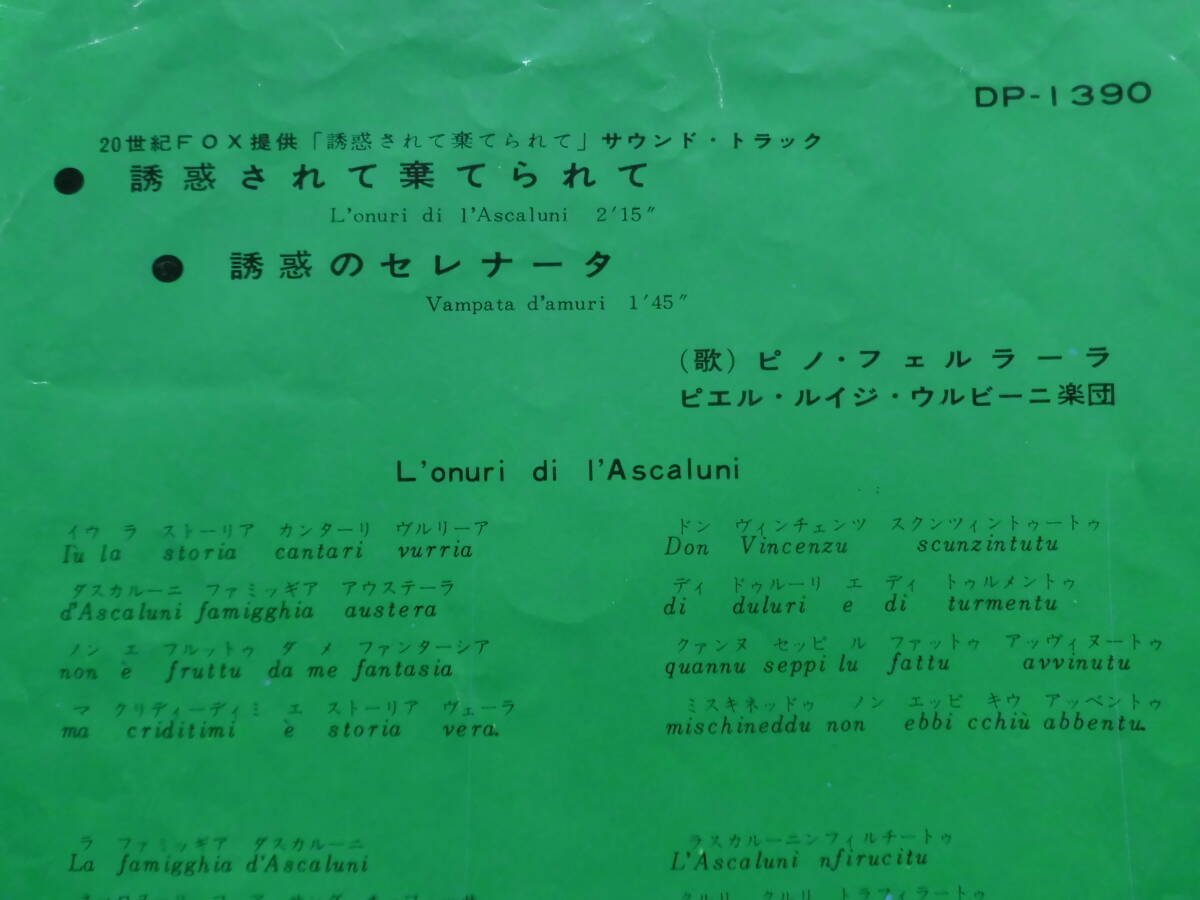 DP-1390
20世紀FOX提供「誘惑されて棄てられて」サウンド・トラック
● 誘惑されて棄てられて
L'onuri di l'Ascaluni 2′15″
● 誘惑のセレナータ
Vampata d'amuri 1′45″
(歌) ピノ・フェルラーラ
ピエル・ルイジ・ウルビーニ楽団
L'onuri di l'Ascaluni
イウ ラ ストーリア カンターリ ヴルリーア
Iu la storia cantari vurria
ダスカルーニ ファミッギア アウステーラ
d'Ascaluni famigghia austera
ノン エ フルットゥ ダ メ ファンターシア
non è fruttu da me fantasia
マ クリディーディミ エ ストーリア ヴェーラ
ma criditimi è storia vera.
ラ ファミッギア ダスカルーニ
La famigghia d'Ascaluni
ドン ヴィンチェンツ スクンツィントゥートゥ
Don Vincenzu scunzintutu
ディ ドゥルーリ エ ディ トゥルメントゥ
di duluri e di turmentu
クァンヌ セッピ ル ファットゥ アッヴィヌートゥ
quannu seppi lu fattu avvinutu
ミスキネッドゥ ノン エッビ キウ アッベントゥ
mischineddu non ebbi cchiù abbentu.
ラスカルーニンフィルチートゥ
L'Ascaluni nfirucitu